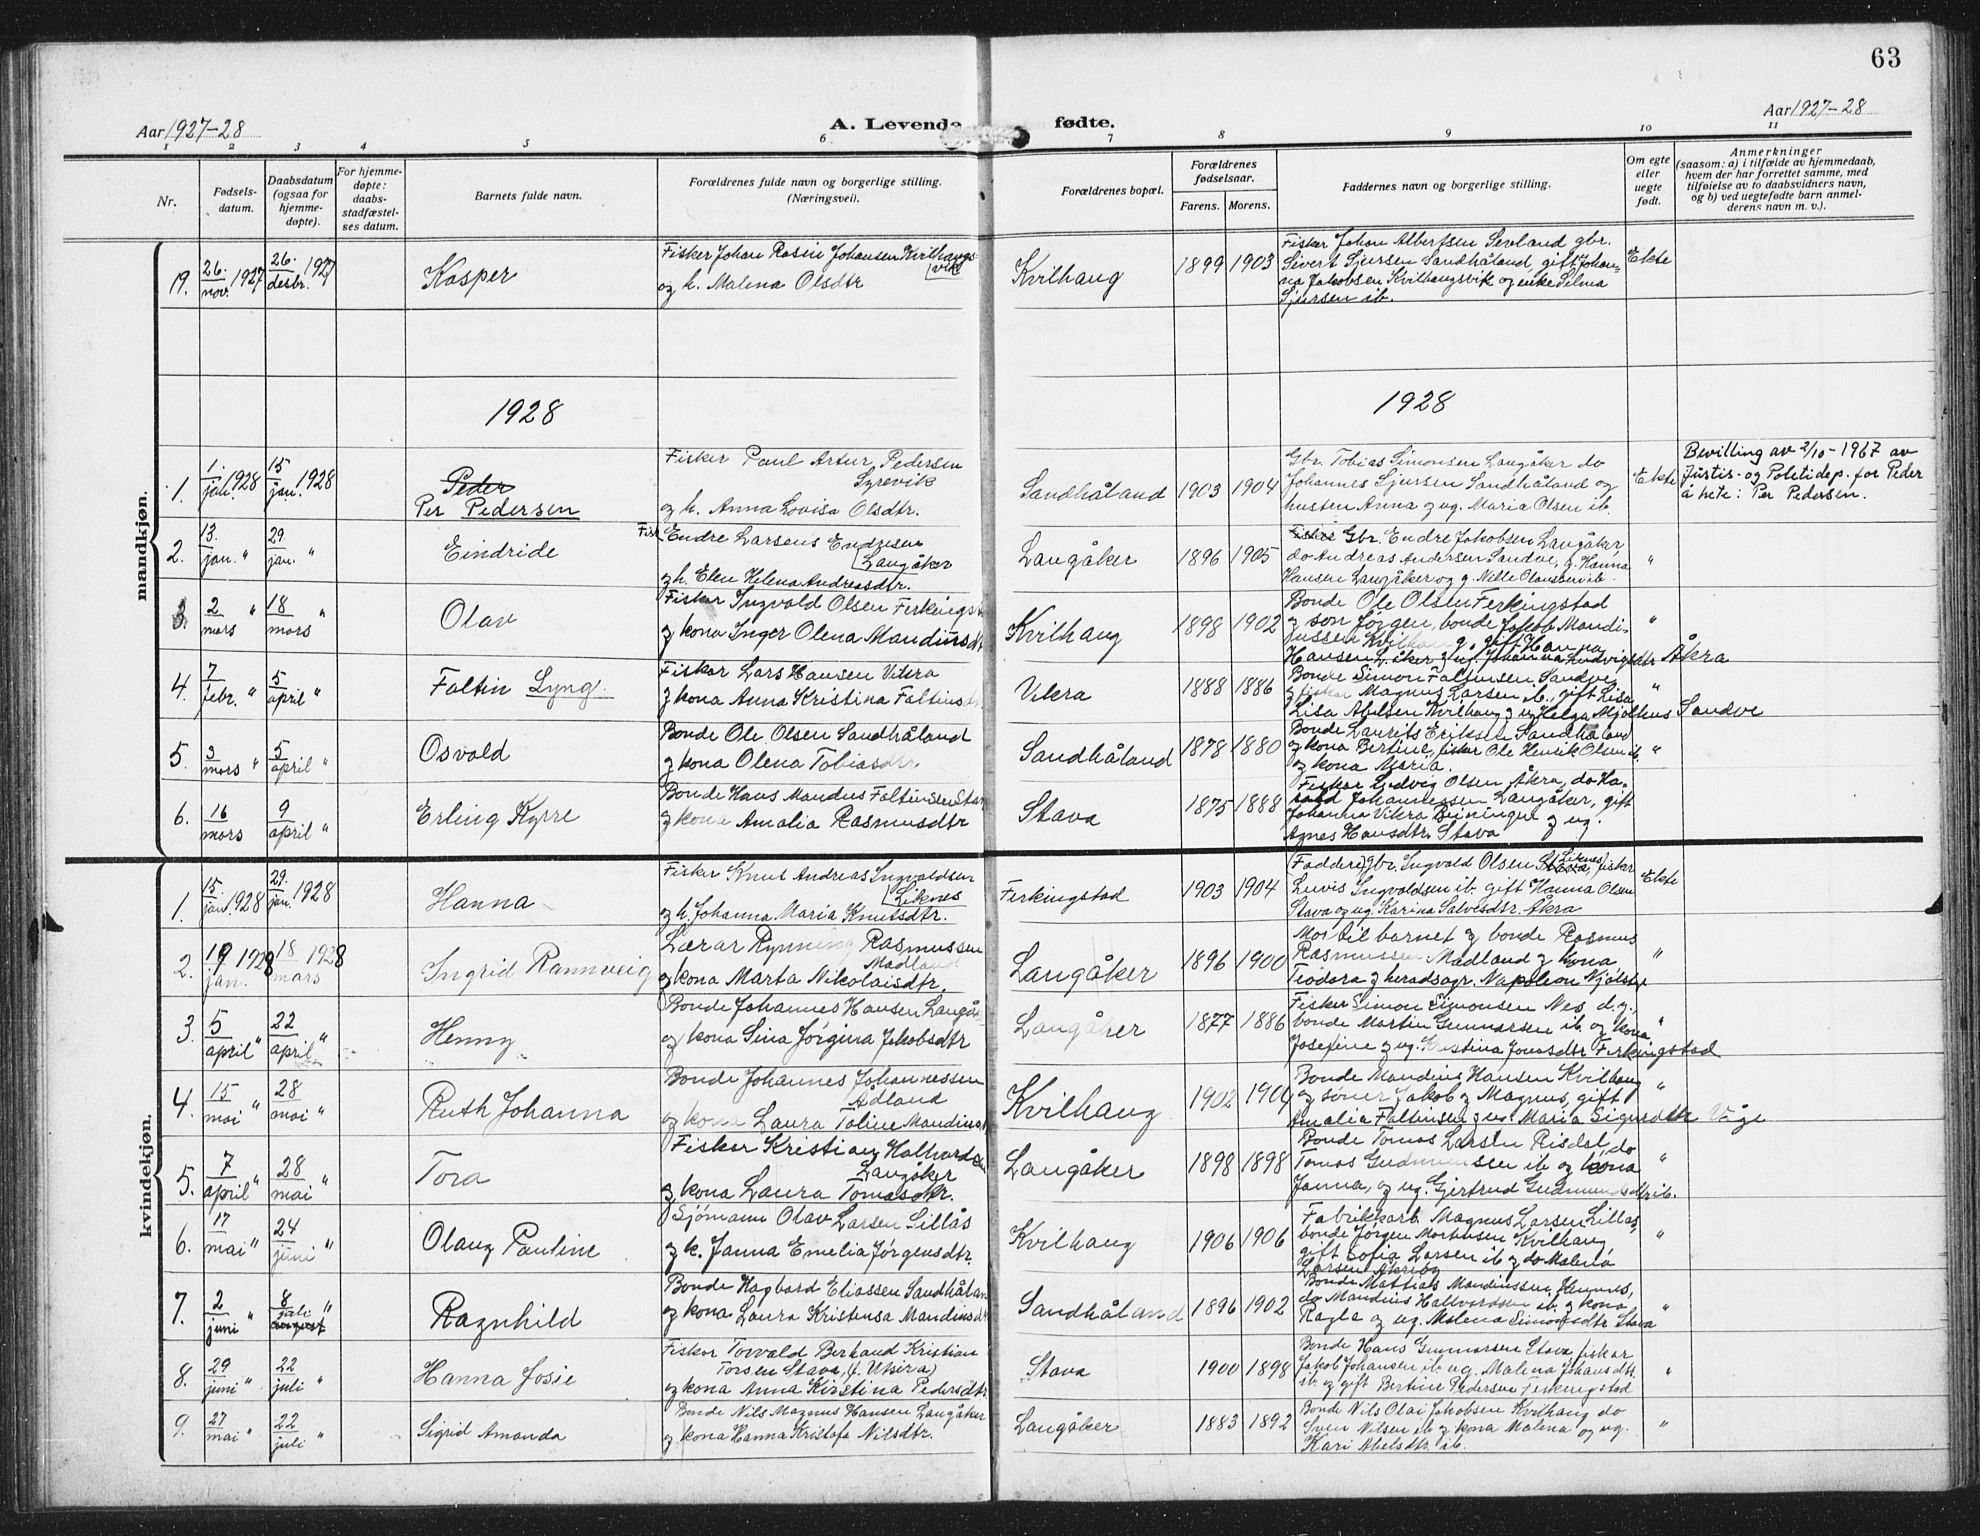 63
Aar 1927-28
A. Levende fødte.
Aar 1927-28
1 2 3 4 5 6 7 8 9 10 11
Nr.
Fødsels-
datum.
Daabsdatum
(ogsaa for
hjemme-
døpte).
For hjemme-
døpte:
daabs-
stadfæstel-
ses datum.
Barnets fulde navn.
Forældrenes fulde navn og borgerlige stilling.
(Næringsvei).
Forældrenes bopæl.
Forældrenes
fødselsaar.
Farens. Morens.
Faddernes navn og borgerlige stilling.
Om egte
eller
uegte
født.
Anmerkninger
(saasom: a) i tilfælde av hjemmedaab,
hvem der har forrettet samme, med
tilføielse av to daabsvidners navn,
og b) ved uegtefødte barn anmel-
derens navn m. v.).
mandkjøn.
19. 26. nov. 1927 26. desbr. 1927 Kasper
Fisker Johan Rasin Johansen Kvilhaugs-
vik
og h. Malena Olsdtr
Kvilhaug 1899 1903
Fisker Johan Albertsen Sevland gbr.
Sivert Sjursen Sandhåland, gift Johan-
na Jakobsen Kvilhaugsvik og enke Selma
Sjursen ib.
Ekte
1928
1928
1. 1. jan. 1928 15 jan. 1928 Peder
Per Pedersen
Fisker Paul Artur Pedersen
Syrevik
og h. Anna Lovisa Olsdtr.
Sandhåland 1903 1904
Gbr. Tobias Simonsen Langåker do
Johannes Sjursen Sandhåland og
husten Anna og ug. Maria Olsen ib.
Ekte
Bevilling av 2/10-1967 av
Justis- og Politidep. for Peder
å hete: Per Pedersen.
2. 13. jan. " 29. jan. " Eindride
Fisk. Endre Larsens Endresen
Langåker
og h. Elen Helena Andreasdtr.
Langåker 1896 1905
Fisker Gbr. Endre Jakobsen Langåker
do Andreas Andersen Sandve, g. Hanna
Hansen Langåker og g. Nille Olausen ib.
"
3. 2 mars " 18 mars " Olav
Fisker Ingvald Olsen Ferkingst
og kona Inger Olena Mandiusdt
Kvilhaug 1898 1902
Bonde Ole Olsen Ferkingstad
og son Jørgen, bonde Jakob Mandi-
ussen Kvilhaug, gift Hanna
Hansen L åker og ug. Johanna Ludvigsdtr Åkra
"
4. 7 febr. " 5 april " Faltin Lyng.
Fisker Lars Hansen Vikra
og kona Anna Kristina Faltinsdt
Vikra 1888 1886
Bonde Simon Faltinsen Sandve
og fisker Magnus Larsen ib., gift Lisa
Lisa Abelsen Kvilhaug og ug Helga Mjølhus Sandve
"
5. 3 mars " 5 april " Osvald
Bonde Ole Olsen Sandhåland
og kona Olena Tobiasdtr
Sandhåland 1878 1880
Bonde Laurits Eriksen Sandhåland
og kona Bertine, fisker Ole Henrik Olsen ib.
og kona Maria.
"
6. 16 mars 9 april " Erling Kyrre
Bonde Hans Mandius Faltinsen Stav
og kona Amalia Rasmusdtr
Stava 1875 1888
Fisker Ludvig Olsen Åkra, do Ha-
rald Johannessen Langåker, gift
Johanna Vikra Beiningen og ug.
Agnes Hansdtr. Stava
kvindekjøn.
1. 15. jan. 1928 29. jan. 1928 Hanna
Fisker Knut Andreas Ingvaldsen
Liknes
og h. Johanna Maria Knutsdtr.
Ferkingstad 1903 1904
(Faddere) gbr. Ingvald Olsen Stava Liknes, fisker
Lewis Ingvaldsen ib. gift Hanna Olsen
Stava og ug. Karina Salvesdtr. Åkra
Ekte
2. 19 jan. 1928 18 mars 1928 Ingrid Rannveig
Lærar Rynning Rasmussen
Madland
og kona Marta Nikolaisdtr.
Langåker 1896 1900
Mor til barnet og bonde Rasmus
Rasmussen Madland og kona
Teodora og heradsagr. Napoleon Njølstr
"
3 5 april " 22 april " Henny
Bonde Johannes Hansen Langåk
og kona Sina Jørgina Jakobsdtr
Langåker 1877 1886
Fisker Simon Simonsen Nes d.y.,
bonde Martin Gunnarsen ib. og kona
Josefine og ug. Kristina Jonasdtr Ferkingstad
"
4. 15 mai " 28 mai " Ruth Johanna
Bonde Johannes Johannessen
Ådland
og kona Laura Toline Mandiusdt
Kvilhaug 1902 1904
Bonde Mandius Hansen Kvilhaug
og søner Jakob og Magnus, gift
Amalia Faltinsen og ug Maria Sigurdsdtr Våge
"
5. 7 april " 28 mai " Tora
Fisker Kristian Hallvardsen
Langåker
og kona Laura Tomasdtr.
Langåker 1898 1898
Bonde Tomas Larsen Risdal, do
Tomas Gudmunsen ib og kona
Janna, og ug. Gjertrud Gudmundsdtr ib.
"
6. 17 mai " 24 juni " Olaug Pauline
Sjømann Olav Larsen Lillås
og k. Janna Emelia Jørgensdtr.
Kvilhaug 1906 1906
Fabrikkarb. Magnus Larsen Lillås,
bonde Jørgen Mortensen Kvilhaug
gift Sofia Larsen ib og do Malena
Larsen Åkrøy
"
7. 2 juni " 8 juli august " Ragnhild
Bonde Hagbard Eliassen Sandhålan
og kona Laura Kristensa Mandiusdt
Sandhåland 1896 1902
Bonde Mattias Mandiussen Hemnes,
do Mandius Hallvardsen ib. og kona
Ragla og ug. Malena Simonsdtr Stava
"
8. 29 juni " 22 juli " Hanna Josie
Fisker Torvald Bertrand Kristian
Torsen Stava, (f. Utsira)
og kona Anna Kirstina Pedersdtr
Stava 1900 1898
Bonde Hans Gunnarsen Stava, fisker
Jakob Johansen ib. ug. Malena Johansdtr.
ib. og gift Bertine Pedersen Ferkingstad
"
9. 27 mai " 22 juli " Sigrid Amanda
Bonde Nils Magnus Hansen Langåker
og kona Hanna Kristofa Nilsdtr.
Langåker 1883 1892
Bonde Nils Olai Jakobsen Kvilhaug do
Sven Nilsen ib og kona Malena og ug.
Kari Abelsdtr ib.
"